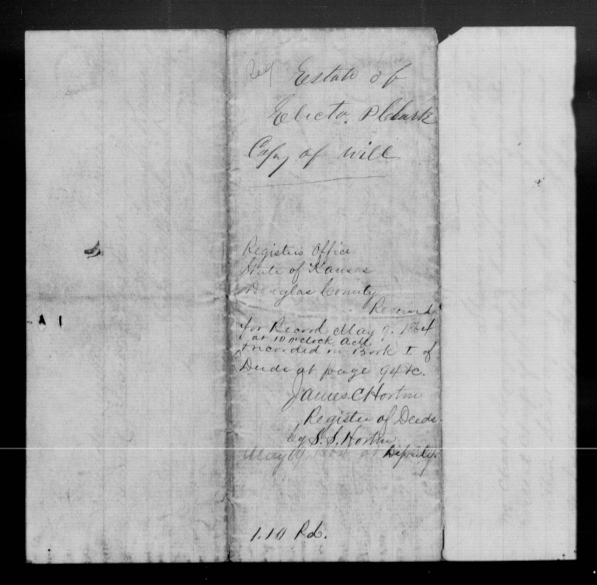 Estate of
Electa P Clark
Copy of Will
Registers Office
State of Kansas
Douglas County
Received
for Record May 9. 1864
at 10 o'clock A.M.
& recorded in Book I of
Deeds at page 94 &c.
James C Horton
Register of Deeds
by S. S. Horton
May Deputy
1.10 Pd.
A 1